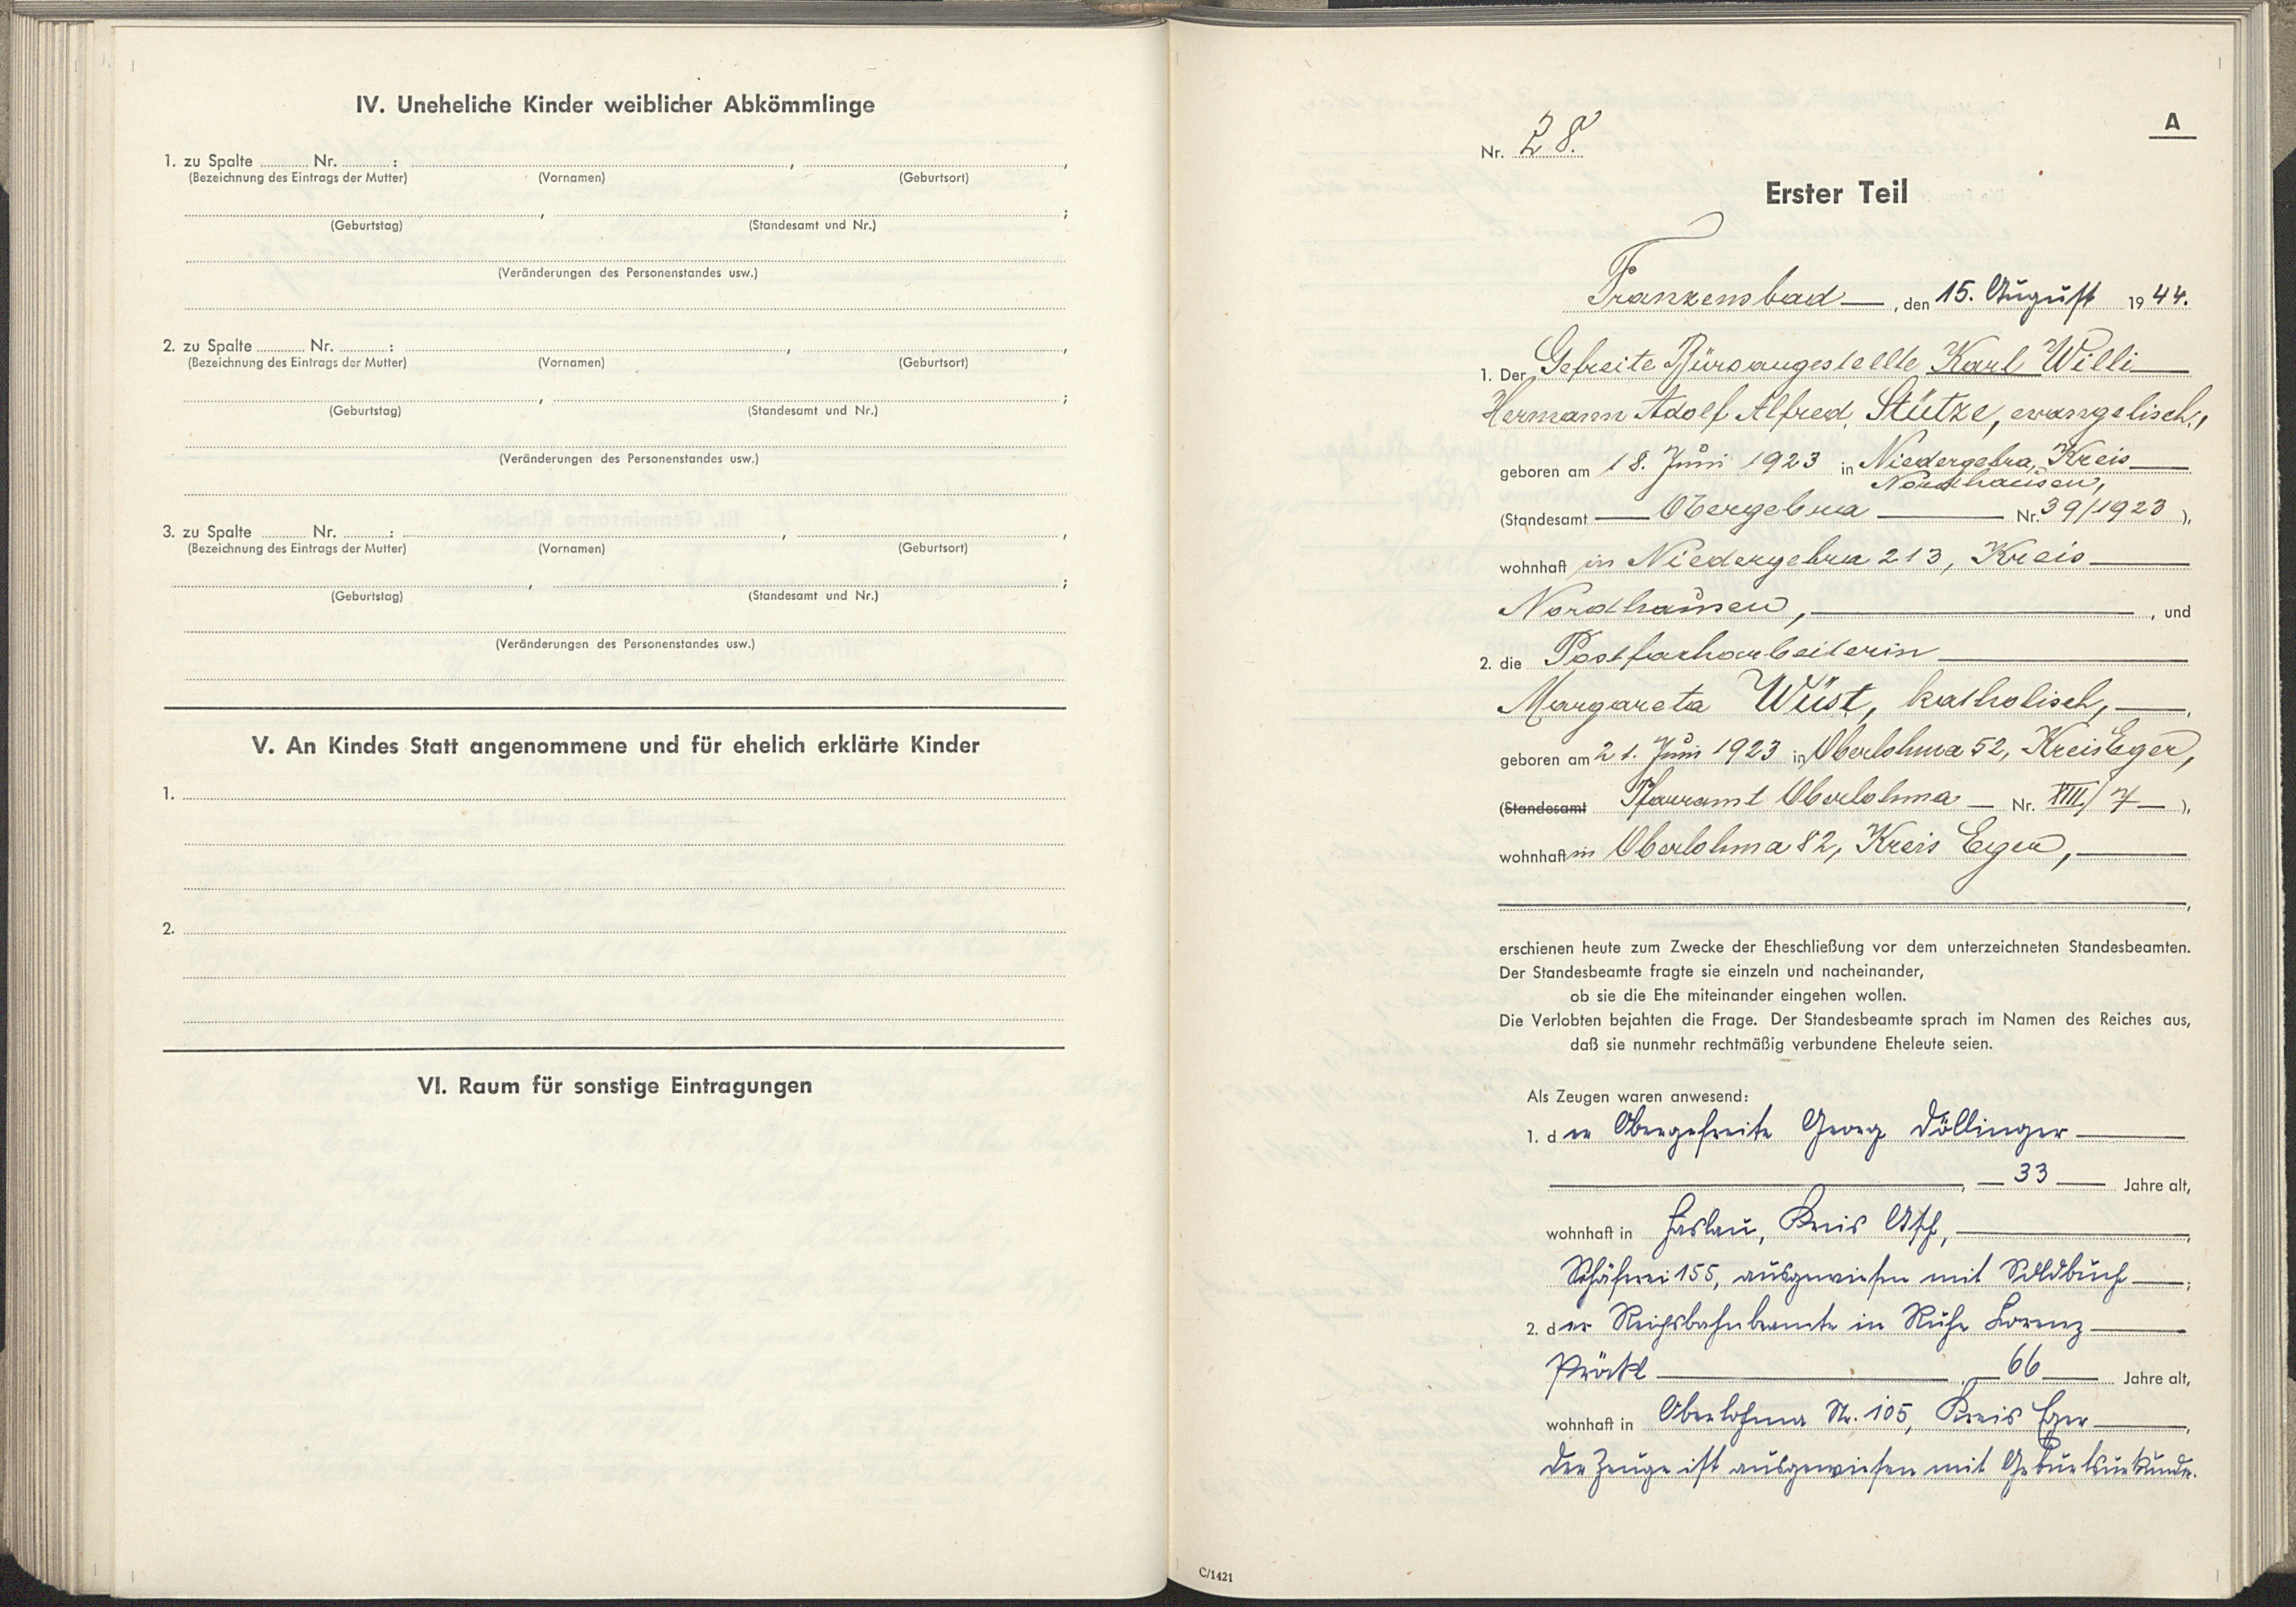 IV. Uneheliche Kinder weiblicher Abkömmlinge
1. zu Spalte Nr. : , ,
(Bezeichnung des Eintrags der Mutter) (Vornamen) (Geburtsort)
, ;
(Geburtstag) (Standesamt und Nr.)
(Veränderungen des Personenstandes usw.)
2. zu Spalte Nr. : , ,
(Bezeichnung des Eintrags der Mutter) (Vornamen) (Geburtsort)
, ;
(Geburtstag) (Standesamt und Nr.)
(Veränderungen des Personenstandes usw.)
3. zu Spalte Nr. : , ,
(Bezeichnung des Eintrags der Mutter) (Vornamen) (Geburtsort)
, ;
(Geburtstag) (Standesamt und Nr.)
(Veränderungen des Personenstandes usw.)
V. An Kindes Statt angenommene und für ehelich erklärte Kinder
1.
2.
VI. Raum für sonstige Eintragungen
A
Nr. 28.
Erster Teil
Franzensbad —, den 15. August 1944.
1. Der Gefreite Büroangestellte Karl Willi —
Hermann Adolf Alfred, Stütze, evangelisch,
geboren am 18. Juni 1923 in Niedergebra, Kreis —
Nordhausen,
(Standesamt — Obergebra — Nr. 39/1923 ),
wohnhaft in Niedergebra 213, Kreis —
Nordhausen, — , und
2. die Postfacharbeiterin —
Margareta Wüst, katholisch, — ,
geboren am 21. Juni 1923 in Oberlohma 52, Kreis Eger,
(Standesamt Pfarramt Oberlohma — Nr. XIII/7 — ),
wohnhaft in Oberlohma 82, Kreis Eger, —
— ,
erschienen heute zum Zwecke der Eheschließung vor dem unterzeichneten Standesbeamten.
Der Standesbeamte fragte sie einzeln und nacheinander,
ob sie die Ehe miteinander eingehen wollen.
Die Verlobten bejahten die Frage. Der Standesbeamte sprach im Namen des Reiches aus,
daß sie nunmehr rechtmäßig verbundene Eheleute seien.
Als Zeugen waren anwesend:
1. der Obergefreite Georg Döllinger —
— , — 33 — Jahre alt,
wohnhaft in Haslau, Kreis Asch, — ,
Schäferei 155, ausgewiesen mit Soldbuch — ;
2. der Reichsbahnbeamte in Ruhe Lorenz —
— , — 66 — Jahre alt,
wohnhaft in Oberlohma Nr. 105, Kreis Eger — ,
Der Zeuge ist ausgewiesen mit Geburtsurkunde.
C/1421